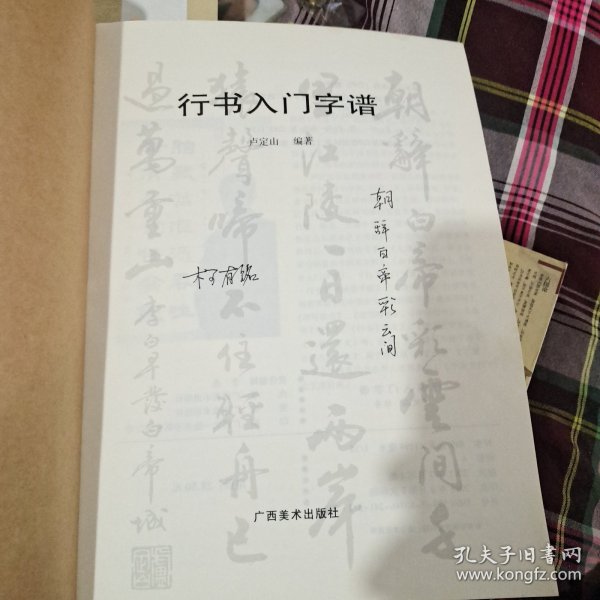 行书入门字谱
卢定山 编著
朝辞白帝彩云间
朝辭白帝彩雲間千
里江陵一日還兩岸
猿聲啼不住輕舟已
過萬重山李白早發白帝城
广西美术出版社
孔夫子旧书网
www.kongfz.com